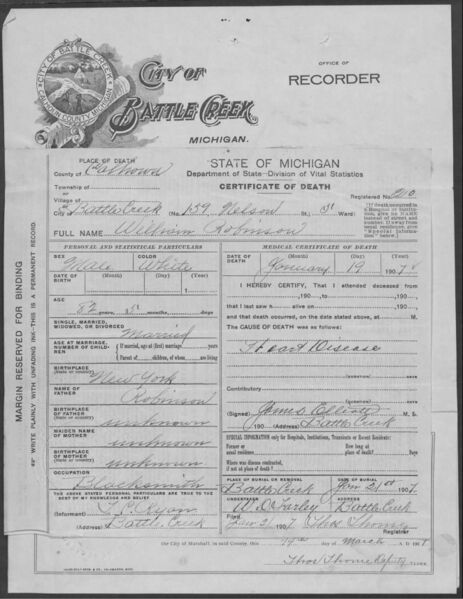 CITY OF BATTLE CREEK
CALHOUN COUNTY, MICHIGAN
CITY OF
BATTLE CREEK,
MICHIGAN.
OFFICE OF
RECORDER
PLACE OF DEATH
County of Calhoun
Township of
or
Village of
or
City of Battle Creek (No. 159 Nelson St. Ward)
STATE OF MICHIGAN
Department of State—Division of Vital Statistics
CERTIFICATE OF DEATH
Registered No.
[If death occurred in a Hospital or Institution, give its NAME instead of street and number. If away from usual residence, give "Special Information" below.]
FULL NAME William Robinson
MARGIN RESERVED FOR BINDING
WRITE PLAINLY WITH UNFADING INK—THIS IS A PERMANENT RECORD
PERSONAL AND STATISTICAL PARTICULARS
SEX Male
COLOR White
DATE OF BIRTH (Month) (Day) (Year)
AGE
82 years, months, days
SINGLE, MARRIED, WIDOWED, OR DIVORCED Married
AGE AT MARRIAGE, NUMBER OF CHILDREN
If married, age at (first) marriage years
Parent of children, of whom are living
BIRTHPLACE (State or country) New York
NAME OF FATHER Robinson
BIRTHPLACE OF FATHER (State or country) unknown
MAIDEN NAME OF MOTHER unknown
BIRTHPLACE OF MOTHER (State or country) unknown
OCCUPATION Blacksmith
THE ABOVE STATED PERSONAL PARTICULARS ARE TRUE TO THE BEST OF MY KNOWLEDGE AND BELIEF
(Informant) Ryan
(Address) Battle Creek
MEDICAL CERTIFICATE OF DEATH
DATE OF DEATH January 19 1907
(Month) (Day) (Year)
I HEREBY CERTIFY, That I attended deceased from
190 , to 190 ,
that I last saw h alive on 190 ,
and that death occurred, on the date stated above, at M.
The CAUSE OF DEATH was as follows:
Heart Disease
Contributory
(Signed) James Elliott M. D.
(Address) Battle Creek
SPECIAL INFORMATION only for Hospitals, Institutions, Transients or Recent Residents:
Former or usual residence
How long at place of death? days
Where was disease contracted, if not at place of death?
PLACE OF BURIAL OR REMOVAL Battle Creek
DATE OF BURIAL Jan 21st 1907
UNDERTAKER W. D. Farley
(Address) Battle Creek
Jan 21 1907 Thos Thorne
Registrar
the City of Marshall, in said County, this 19th day of March A. D. 1907
Thos Thorne Deputy CLERK